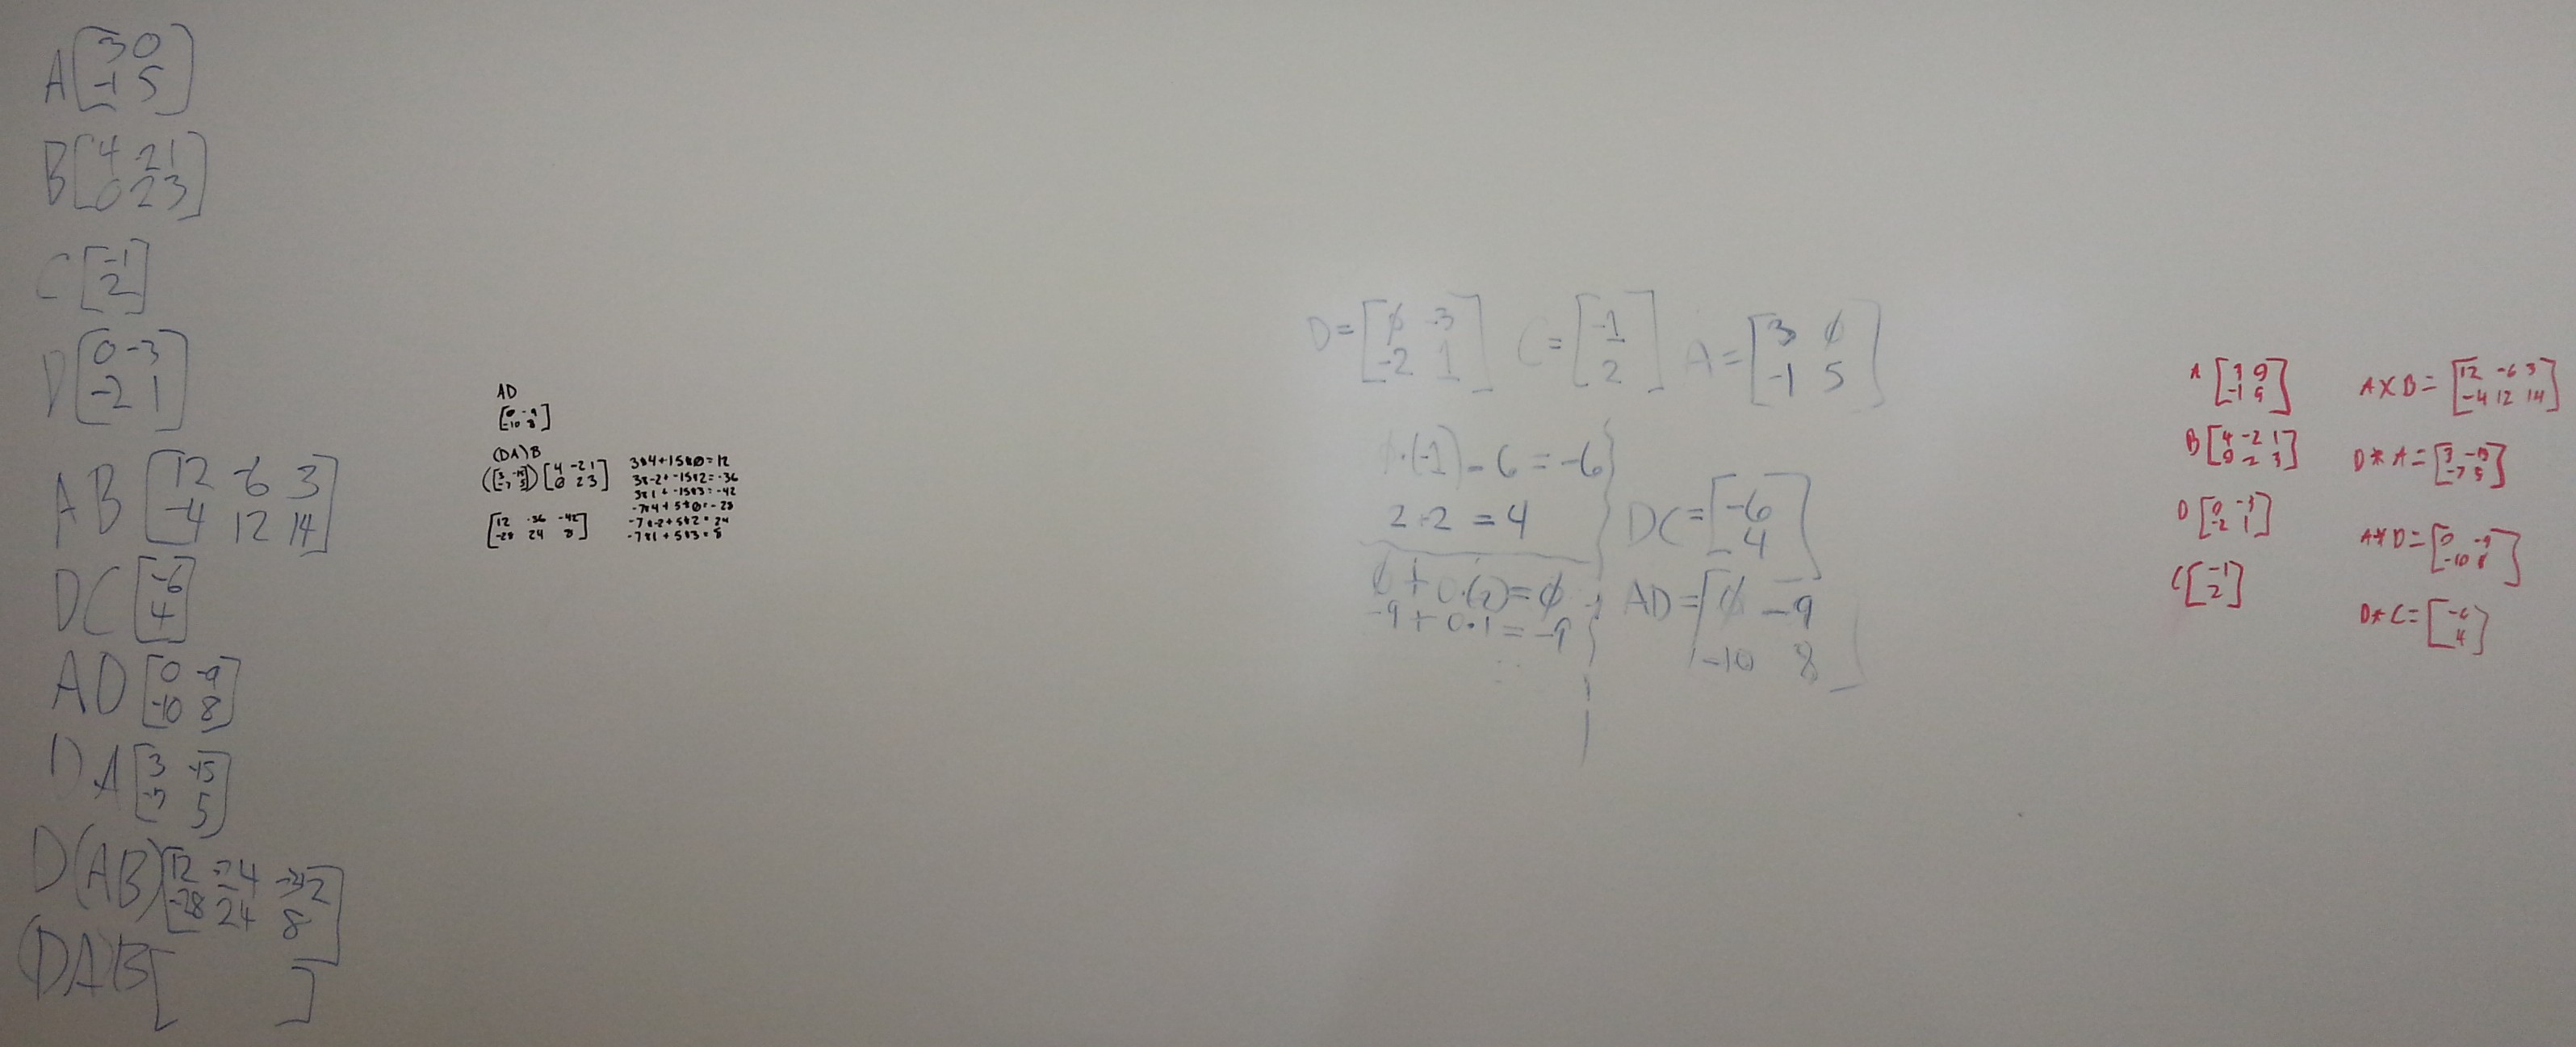 A [ 3 0
-1 5 ]
B [ 4 2 1
0 2 3 ]
C [ -1
2 ]
D [ 0 -3
-2 1 ]
AB [ 12 -6 3
-4 12 14 ]
DC [ -6
4 ]
AD [ 0 -9
-10 8 ]
DA [ 3 -15
-7 5 ]
D(AB) [ 12 -42
-28 24 8 ]
(DA)B [ ]
AD
[ 0 -9
-10 8 ]
(DA)B
( [ 3 -15
-7 5 ] ) [ 4 -2 1
0 2 3 ]
[ 12 -36 -42
-28 24 8 ]
3*4+15*0=12
3*-2+-15*2=-36
3*1+-15*3=-42
-7*4+5*0=-28
-7*-2+5*2=24
-7*1+5*3=8
D = [ 0 -3
-2 1 ]
C = [ -1
2 ]
A = [ 3 0
-1 5 ]
·(-1) - 6 = -6
2+2 = 4
DC = [ -6
4 ]
0 + 0·(2) = 0
-9 + 0·1 = -9
AD = [ 0 -9
-10 8 ]
A [ 3 0
-1 5 ]
B [ 4 -2 1
0 2 3 ]
D [ 0 -3
-2 1 ]
C [ -1
2 ]
A X B = [ 12 -6 3
-4 12 14 ]
D * A = [ 3 -15
-7 5 ]
A * D = [ 0 -9
-10 8 ]
D * C = [ -6
4 ]